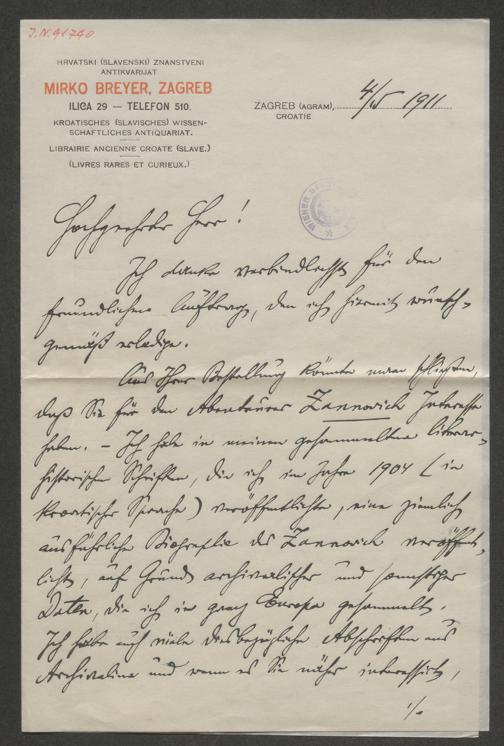 J.N. 91740
HRVATSKI (SLAVENSKI) ZNANSTVENI
ANTIKVARIJAT
MIRKO BREYER, ZAGREB
ILICA 29 — TELEFON 510.
KROATISCHES (SLAVISCHES) WISSEN-
SCHAFTLICHES ANTIQUARIAT.
LIBRAIRIE ANCIENNE CROATE (SLAVE.)
(LIVRES RARES ET CURIEUX.)
ZAGREB (AGRAM), 4/V 1911
CROATIE
WIENER
Hochgeehrter Herr!
Ich danke verbindlichst für den
freundlichen Auftrag, den ich hiermit wunsch-
gemäß erledige.
Aus Ihrer Bestellung könnte man schließen,
daß Sie für den Abenteurer Zannowich Interesse
haben. – Ich habe in meinen gesammelten literar-
historischen Schriften, die ich im Jahre 1904 (in
kroatischer Sprache) veröffentlichte, eine ziemlich
ausführliche Biografie des Zannowich veröffent-
licht, auf Grund archivalischer und sonstiger
Daten, die ich in ganz Europa gesammelt.
Ich habe auch viele diesbezügliche Abschriften aus
Archivalien und wenn es Sie näher interessirt,
./.